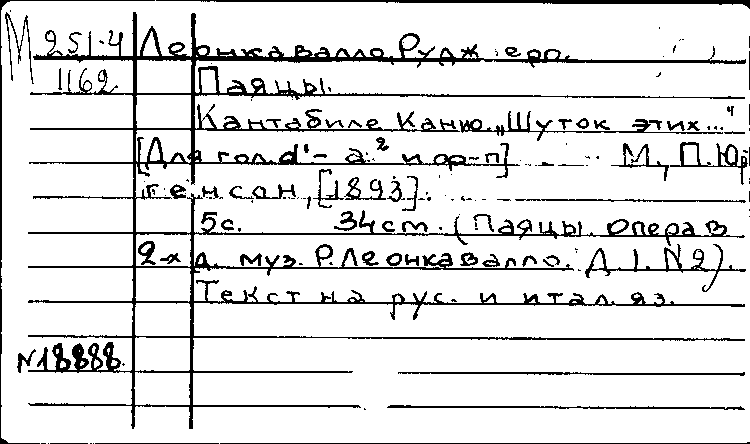 М 251-4 Леонкавалло, Руджеро.
1162 Паяцы.
Кантабиле Канио. „Шуток этих..."
[Для гол. d¹ - a² и ф-п] М., П. Юр
генсон, [1893].
5с. 34cm. (Паяцы. Опера в
2-х д. муз. Р. Леонкавалло. Д. 1. N 2).
Текст на рус. и итал. яз.
N18888.